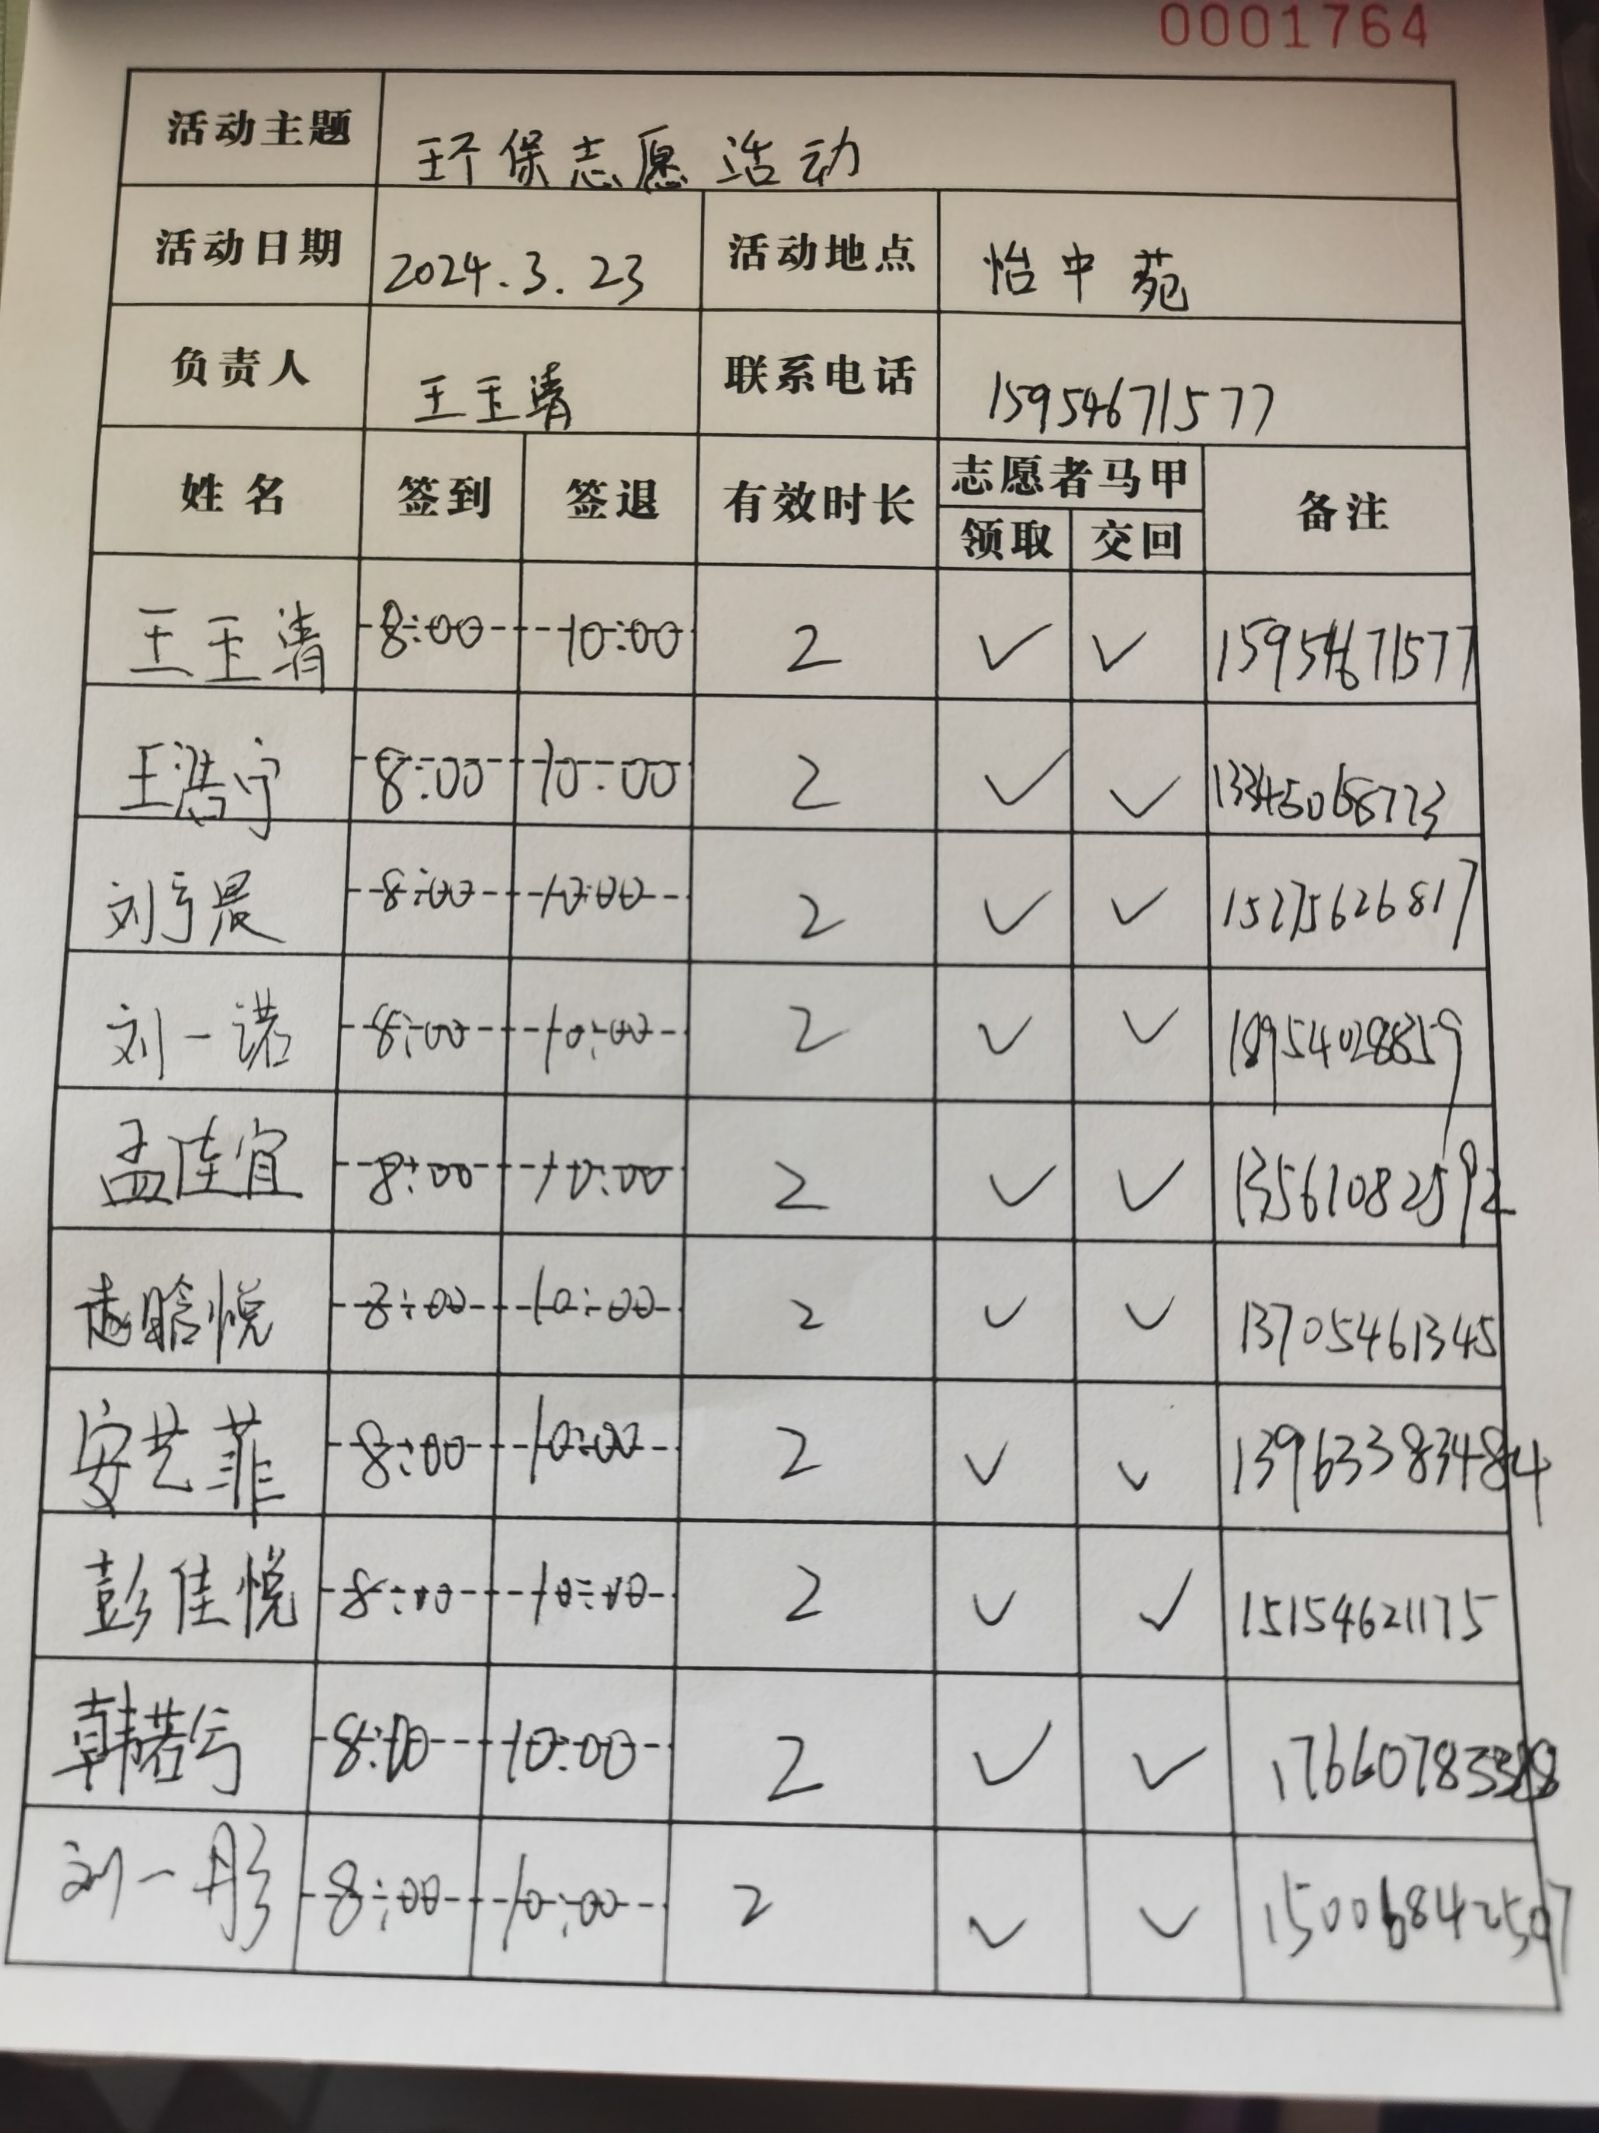 0001764
活动主题 环保志愿活动
活动日期 2024.3.23 活动地点 怡中苑
负责人 王玉清 联系电话 15954671577
姓名 签到 签退 有效时长 志愿者马甲 备注
领取 交回
王玉清 8:00 10:00 2 ✓ ✓ 15954671577
王浩宁 8:00 10:00 2 ✓ ✓ 13345068773
刘亨晨 8:00 10:00 2 ✓ ✓ 15275626817
刘一诺 8:00 10:00 2 ✓ ✓ 18954028859
孟佳宜 8:00 10:00 2 ✓ ✓ 13561082592
赵晗悦 8:00 10:00 2 ✓ ✓ 13705461345
安艺菲 8:00 10:00 2 ✓ ✓ 13963383484
彭佳悦 8:00 10:00 2 ✓ ✓ 15154621175
韩若兮 8:00 10:00 2 ✓ ✓
刘一彤 8:00 10:00 2 ✓ ✓ 15006842507